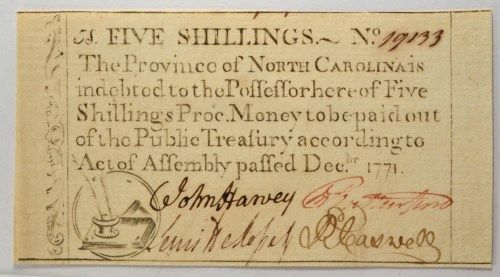 5s. FIVE SHILLINGS.~ No. 19133
The Province of NORTH CAROLINA is
indebted to the Poſſeſſor hereof Five
Shillings Proc. Money to be paid out
of the Public Treaſury according to
Act of Aſſembly paſſed Decbr. 1771.
John Harvey R Rutherford
Lewis De Roſſet R Caswell